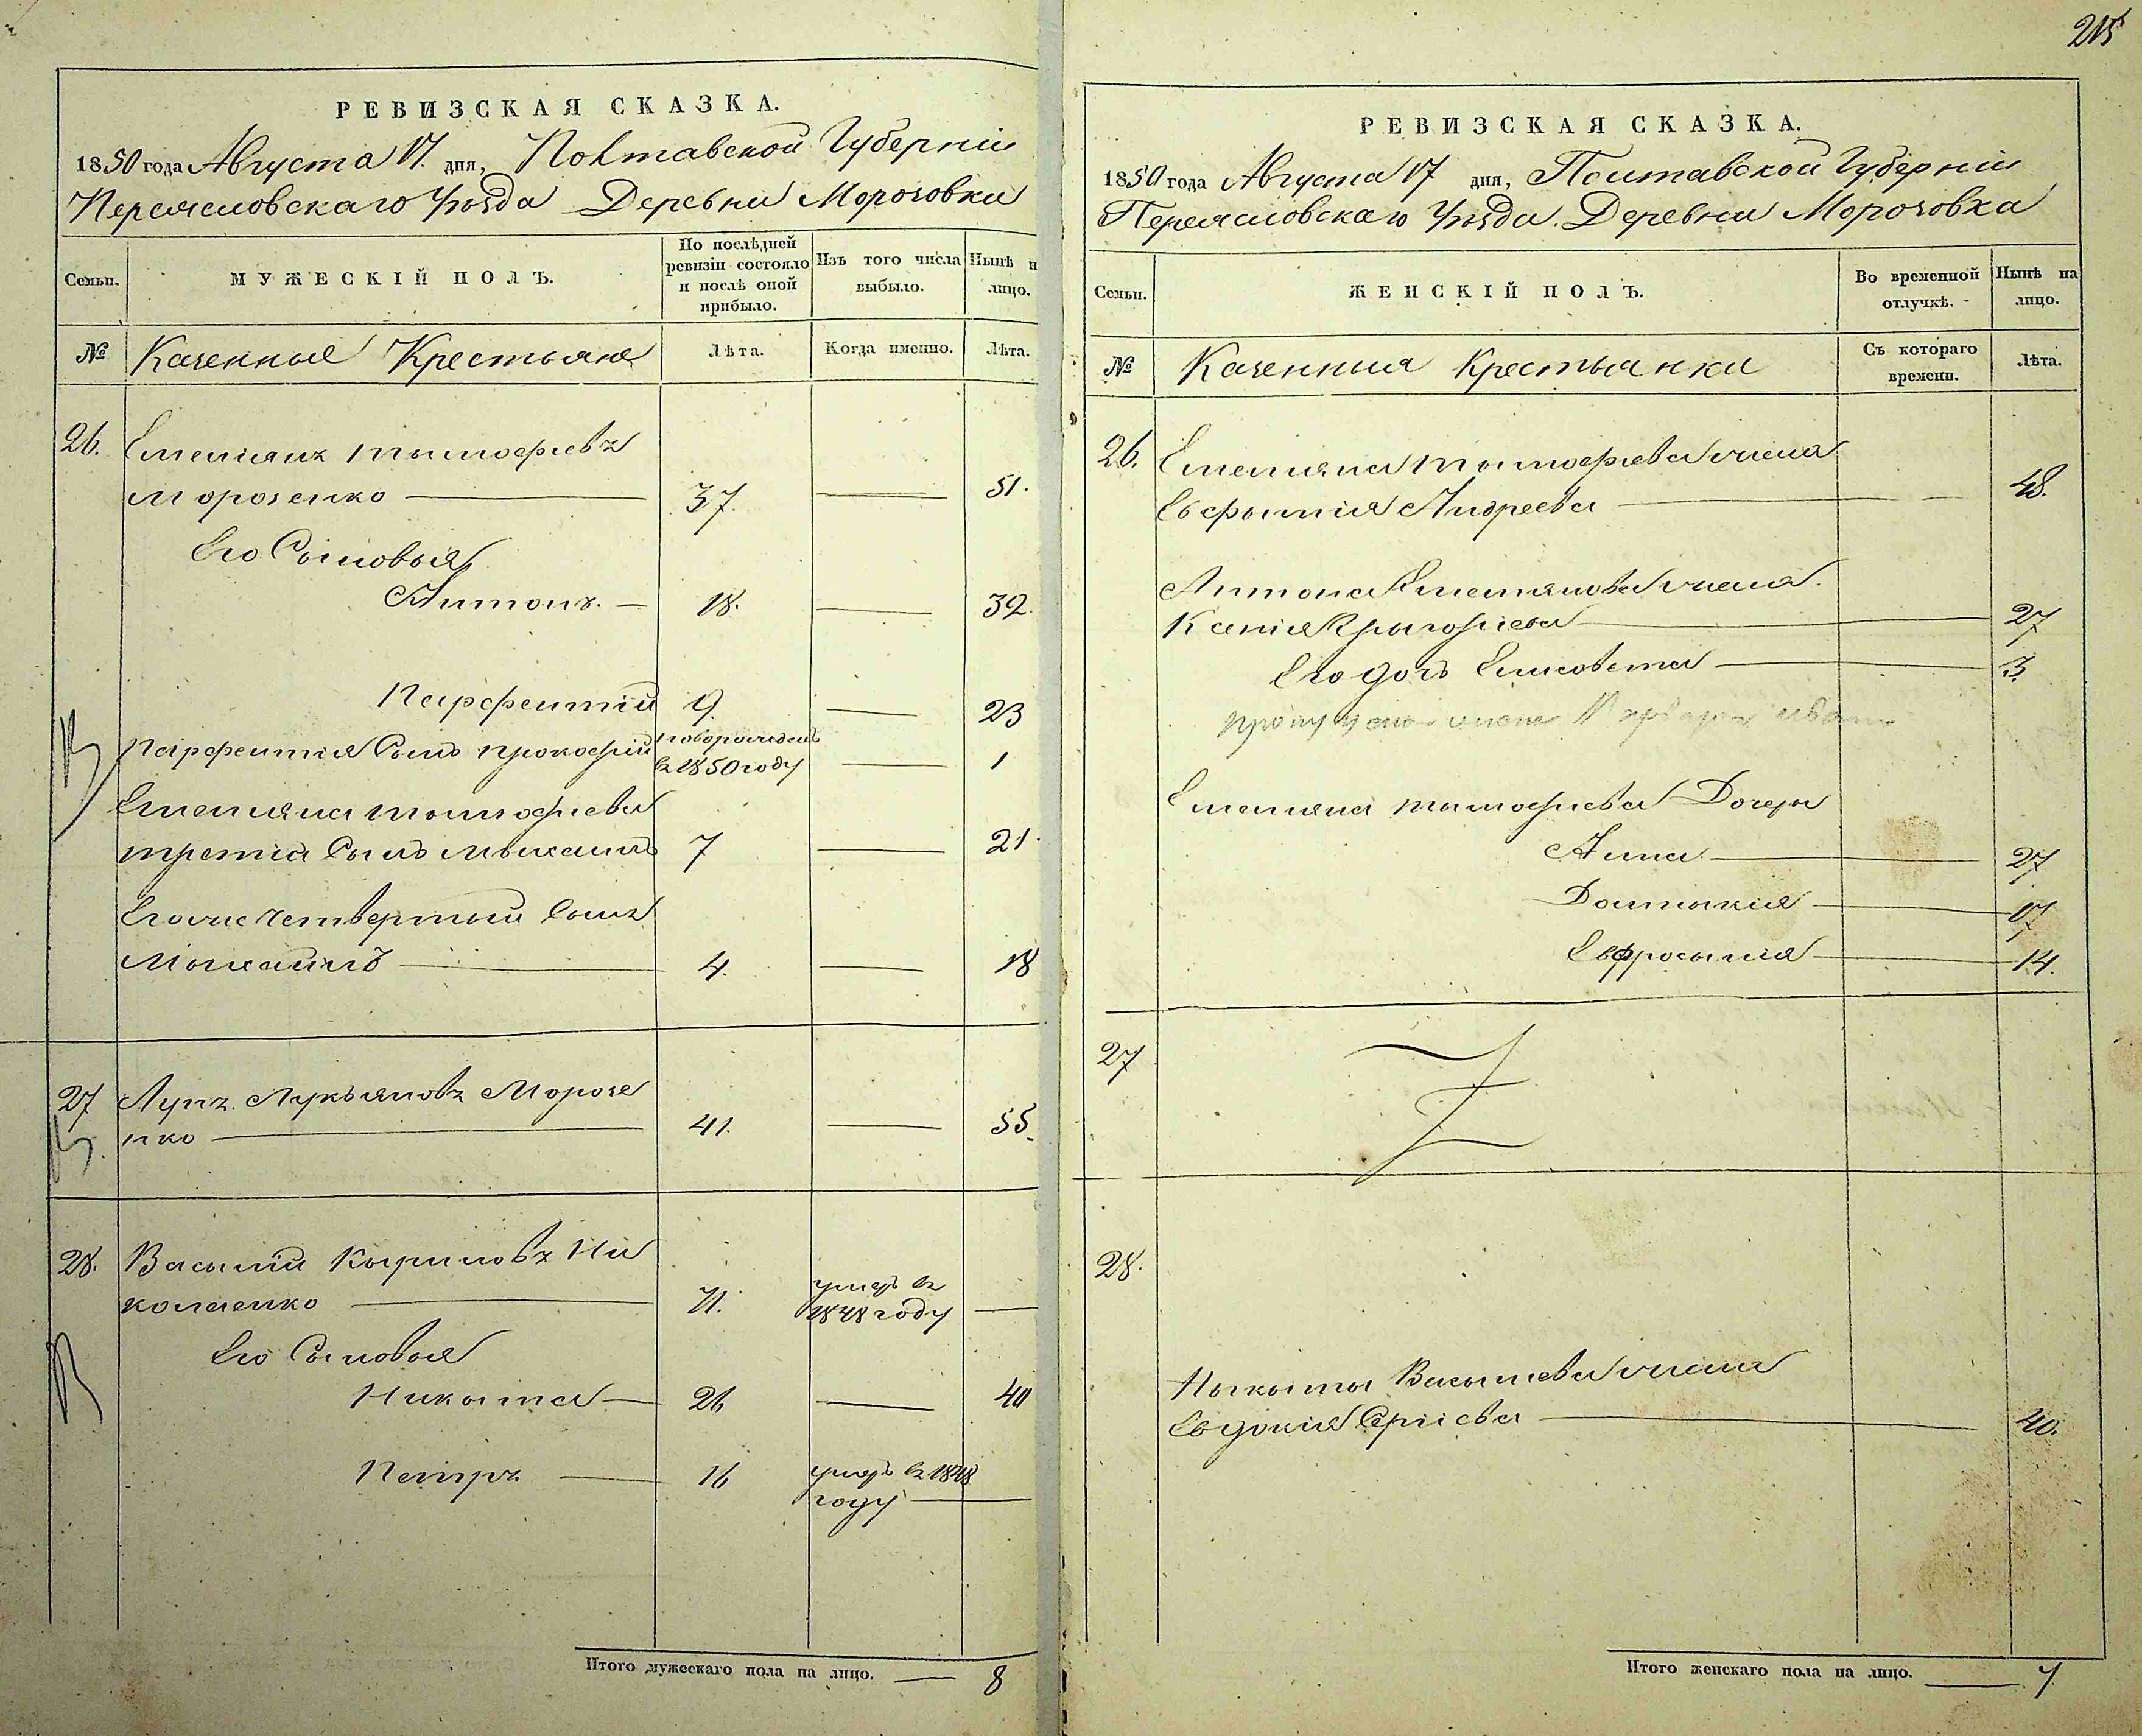 215
РЕВИЗСКАЯ СКАЗКА.
1850 года Августа 17. дня, Полтавской Губерніи
Переяславскаго Уѣзда ДеревниМорозовки
Семьи.
МУЖЕСКІЙ ПОЛЪ.
По послѣдней ревизіи состояло и послѣ оной прибыло.
Изъ того числа выбыло.
Нынѣ н лицо.
№
Казенные Крестьяне
Лѣта.
Когда именно.
Лѣта.
26. Емельянъ Тымофѣевъ
Морозенко 37. 51.
Его Сыновья
Антонъ. 18. 32.
Парфентій 9. 23
Парфентія Сынъ Прокофій новорожденъ в 1850 году 1
Емельяна Тымофѣева
третій Сынъ Мыхаилъ 7 21.
Егоже четвертый Сынъ
Мыхаилъ 4. 18
27 Лупъ Лукьяновъ Морозе
нко 41. 55.
28. Василій Кыриловъ Ни
колаенко 71. умеръ въ 1848 году
Его Сыновья
Никыта 26 40
Петръ 16 умеръ в 1848 году
Итого мужескаго пола на лицо. 8
РЕВИЗСКАЯ СКАЗКА.
1850 года Августа 17 дня, Полтавской Губерніи
Переяславскаго Уѣзда. Деревни Морозовка
Семьи.
ЖЕНСКІЙ ПОЛЪ.
Во временной отлучкѣ.
Нынѣ на лицо.
№
Казенныя Крестьянки
Съ котораго времени.
Лѣта.
26. Емельяна Тымофѣева жена
Евфымія Андреева 48.
Антона Емельянова жена
Ксенія Грыгорьева 27
Его дочь Елисовета 3.
Емельяна Тымофѣева Дочеры
Анна 27
Домныкія 17
Евфросынія 14.
27
28.
Ныкыты Васылева жена
Евдокія Сергіева 40.
Итого женскаго пола на лицо. 7